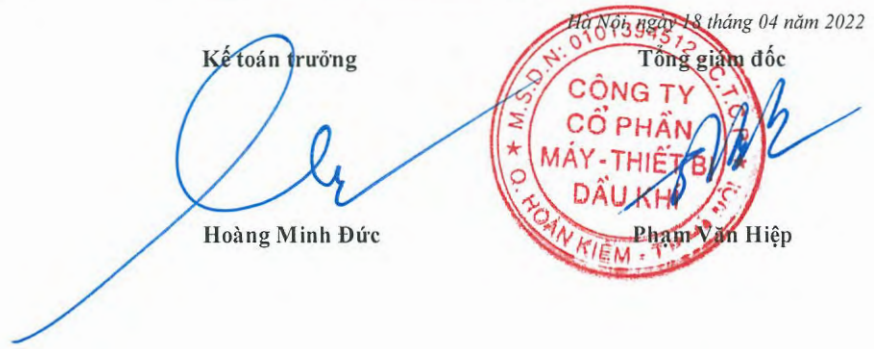 Hà Nội, ngày 18 tháng 04 năm 2022
Kế toán trưởng
Tổng giám đốc
M.S.D.N: 0101394512 - C.T.C.P
CÔNG TY
CỔ PHẦN
MÁY - THIẾT BỊ
DẦU KHÍ
Q. HOÀN KIẾM - TP. HÀ NỘI
Hoàng Minh Đức
Phạm Văn Hiệp